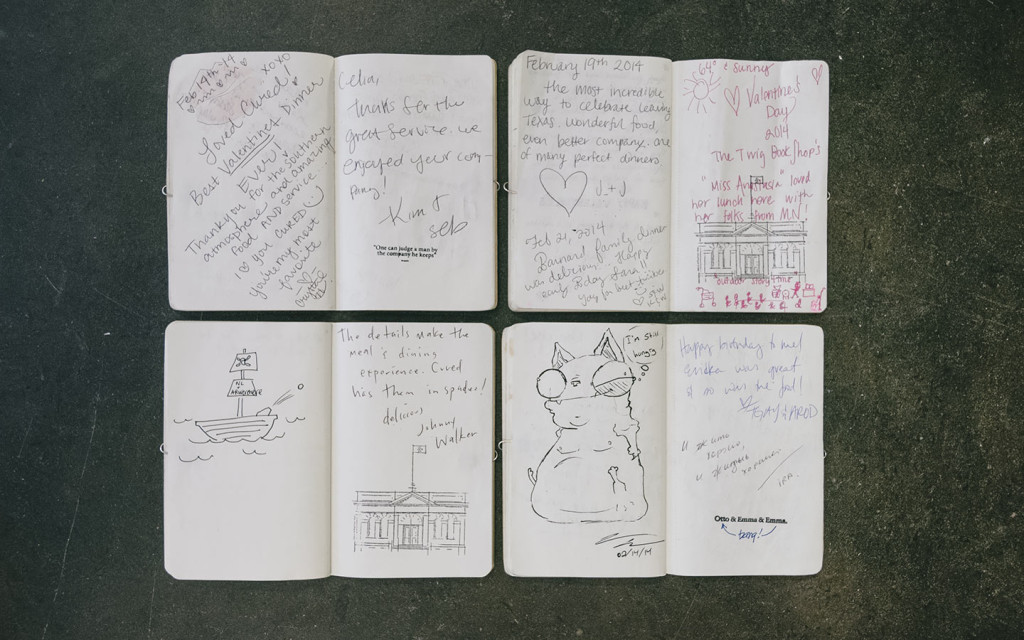 Feb 19th '14
XOXO
Loved Cured!
Best Valentines Dinner
Ever!
Thank you for the southern
atmosphere and amazing
food AND service.
I ♡ you CURED
you're my most
favorite
Celia,
Thanks for the
great service. We
enjoyed your com-
pany!
Kim &
Seb
"One can judge a man by
the company he keeps"
February 19th 2014
the most incredible
way to celebrate leaving
Texas. Wonderful food,
even better company. one
of many perfect dinners.
J + J
Feb 21, 2014
Barnard family dinner
was delicious! Happy
early B-day
Yay for
64° & sunny
Valentine's
Day
2014
The Twig Book Shop's
"Miss Anastasia" loved
her lunch here with
her folks from MN!
outdoor story time
The details make the
meal & dining
experience. Cured
has them in spades!
delicious
Johnny
Walker
I'm still
hungry
02/14/14
Happy birthday to me!
Ericka was great
& so was the food!
IRA.
Otto & Emma & Emma.